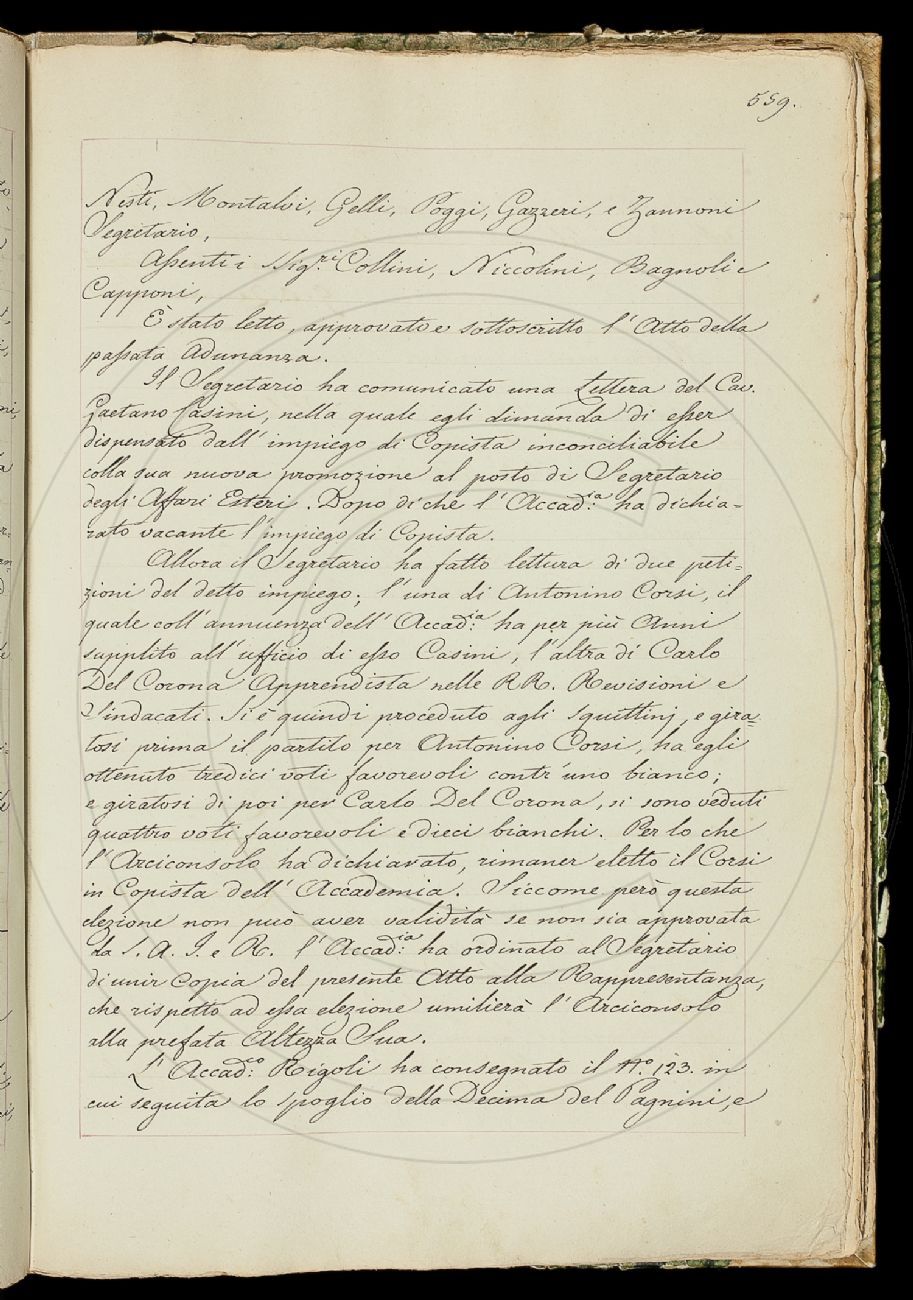 559.
Nesti, Montalvi, Gelli, Poggi, Gazzeri, e Zannoni
Segretario,
Assenti i SSig.ri Collini, Niccolini, Bagnoli e
Capponi,
È stato letto, approvato e sottoscritto l'Atto della
passata Adunanza.
Il Segretario ha comunicato una Lettera del Cav.
Gaetano Casini, nella quale egli dimanda di esser
dispensato dall'impiego di Copista inconciliabile
colla sua nuova promozione al posto di Segretario
degli Affari Esteri. Dopo di che l'Accad:ia ha dichia=
rato vacante l'impiego di Copista.
Allora il Segretario ha fatto lettura di due peti=
zioni del detto impiego; l'una di Antonino Corsi, il
quale coll'annuenza dell'Accad:ia ha per più Anni
supplito all'ufficio di esso Casini, l'altra di Carlo
Del Corona Apprendista nelle RR. Revisioni e
Sindacati. Si è quindi proceduto agli Squittinj, e gira=
tosi prima il partito per Antonino Corsi, ha egli
ottenuto tredici voti favorevoli contr'uno bianco;
e giratosi di poi per Carlo Del Corona, si sono veduti
quattro voti favorevoli e dieci bianchi. Per lo che
l'Arciconsolo ha dichiarato, rimaner eletto il Corsi
in Copista dell'Accademia. Siccome però questa
elezione non può aver validità se non sia approvata
da S. A. I. e R. l'Accad:ia ha ordinato al Segretario
di unir copia del presente Atto alla Rappresentanza,
che rispetto ad essa elezione umilierà l'Arciconsolo
alla prefata Altezza Sua.
L'Accad:co Rigoli ha consegnato il N.o 123. in
cui seguita lo spoglio della Decima del Pagnini, e